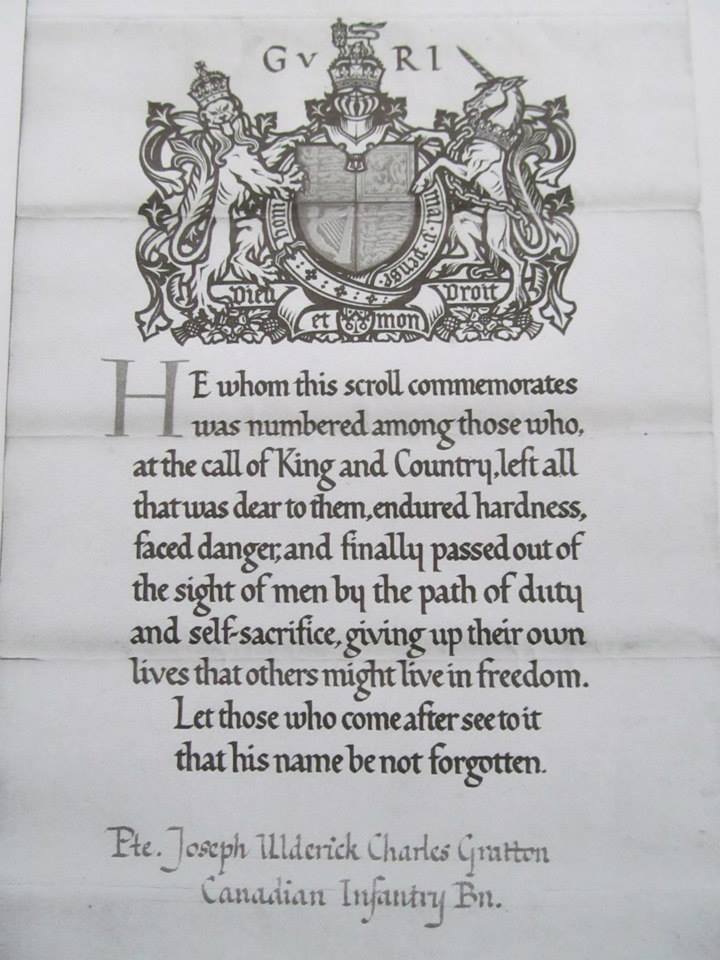 G V R I
Dieu
et mon
Droit
HE whom this scroll commemorates
was numbered among those who,
at the call of King and Country, left all
that was dear to them, endured hardness,
faced danger, and finally passed out of
the sight of men by the path of duty
and self-sacrifice, giving up their own
lives that others might live in freedom.
Let those who come after see to it
that his name be not forgotten.
Pte. Joseph Ulderick Charles Gratton
Canadian Infantry Bn.